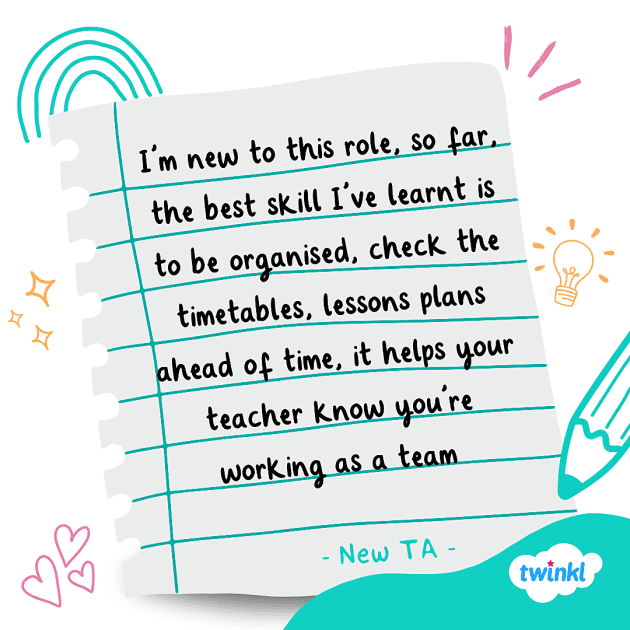 I'm new to this role, so far,
the best skill I've learnt is
to be organised, check the
timetables, lessons plans
ahead of time, it helps your
teacher know you're
working as a team
- New TA -
twinkl